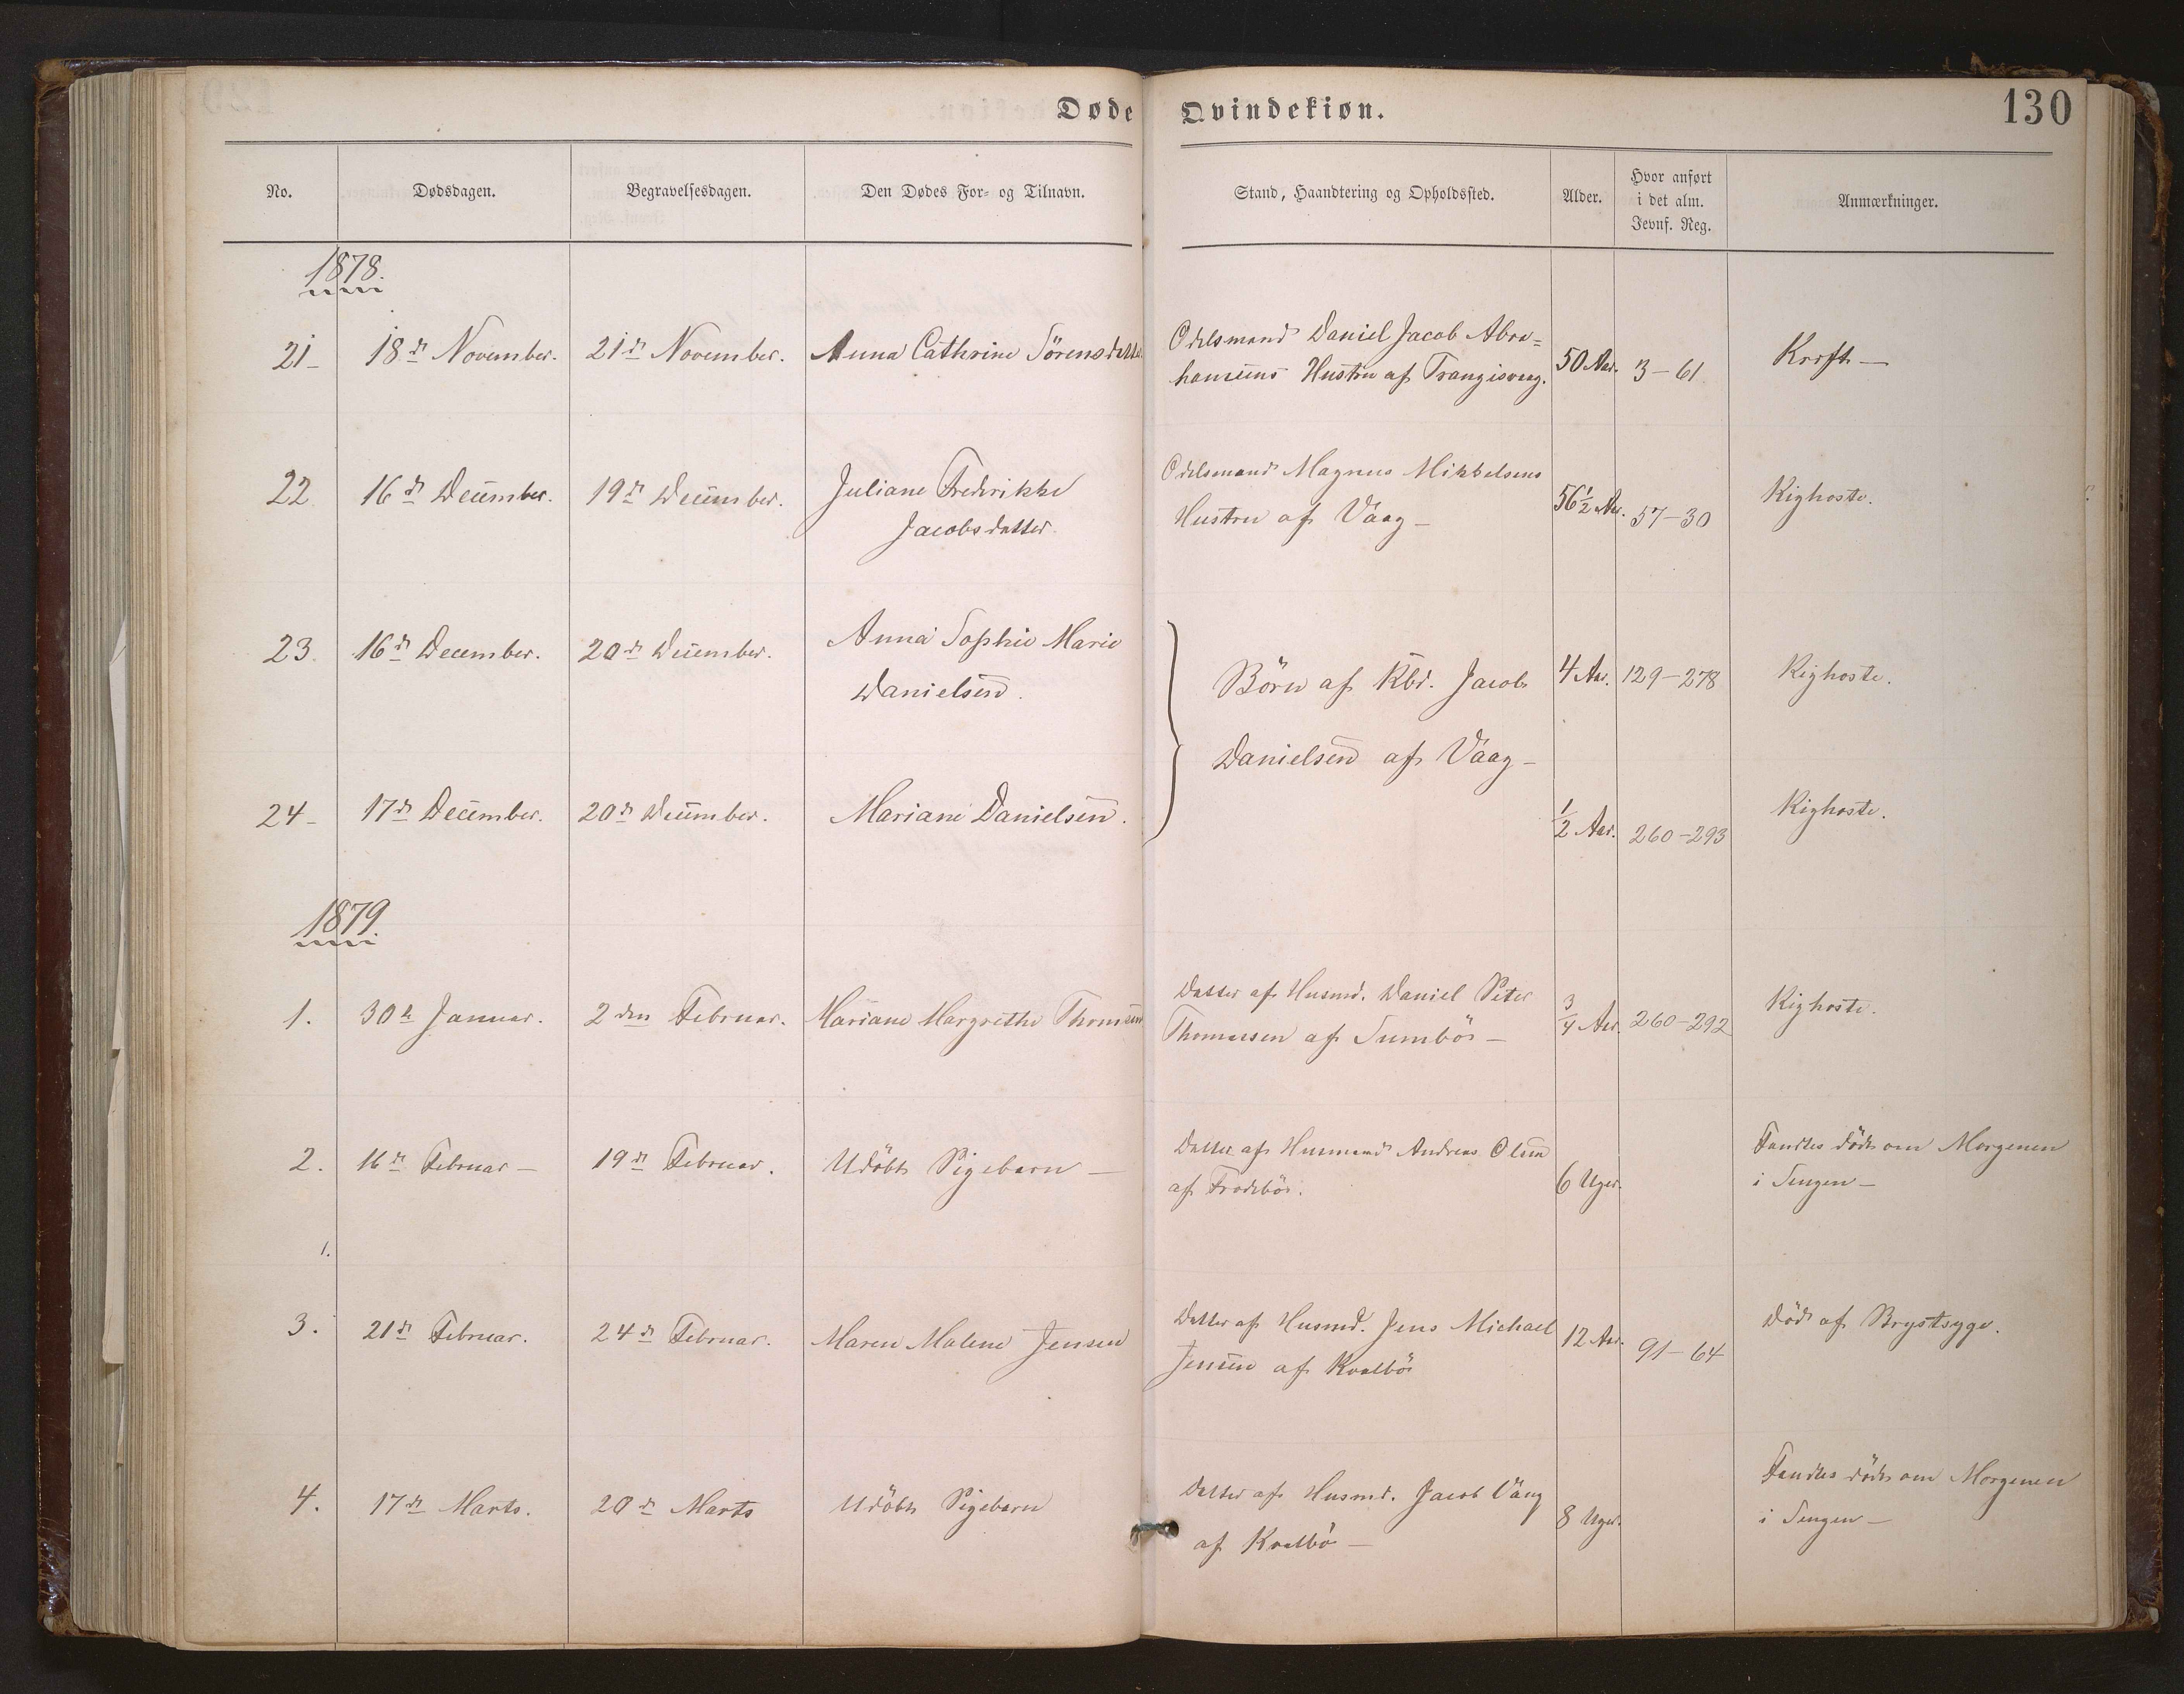 Døde Qvindekiøn.
130
No. Dødsdagen. Begravelsesdagen. Den Dødes For- og Tilnavn. Stand, Haandtering og Opholdssted. Alder. Hvor anført i det alm. Jevnf. Reg. Anmærkninger.
1878.
21 18de November. 21de November. Anna Cathrine Sörensdatter Odelsmand Daniel Jacob Abra= 50 Aar. 3-61 Kræft
hansens Hustru af Trangisvaag.
22 16de December. 19de December. Juliane Frederikke Odelsmand Magnus Mikkelsens 56½ Aar. 57-30 Kighoste.
Jacobsdatter Hustru af Vaag
23 16de December. 20de December. Anna Sophie Marie Börn af Kbd. Jacob 4 Aar. 129-278 Kighoste.
Danielsen. Danielsen af Vaag
24 17de December. 20de December. Mariane Danielsen. ½ Aar. 260-293 Kighoste.
1879.
1. 30te Januar. 2den Februar. Mariane Margrethe Thomsen Datter af Husmd. Daniel Peter ¾ Aar. 260-292 Kighoste.
Thomassen af Sumbö
2. 16de Februar 19de Februar. Udöbt Pigebarn Datter af Husmand Andreas Olsen 6 Uger. Fandtes död om Morgenen
af Frodebö. i Sengen
1.
3. 21de Februar. 24de Februar. Maren Malene Jensen Datter af Husmd. Jens Michael 12 Aar. 91-64 Död af Brystsyge.
Jensen af Kvalbö
4. 17de Marts. 20de Marts Udöbt Pigebarn Datter af Husmd. Jacob Vaag 8 Uger. Fandtes död om Morgenen
af Kvalbö i Sengen